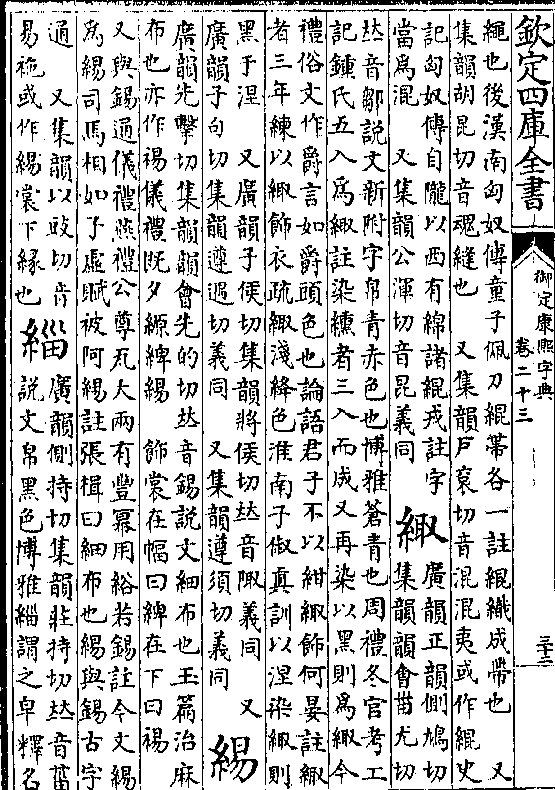 欽定四庫全書
御定康熙字典
卷二十三
三十二
繩也後漢南匈奴傳童子佩刀緄帶各一註緄織成帶也 又
集韻胡昆切音魂縫也 又集韻戸袞切音混混夷或作緄史
記匈奴傳自隴以西有綿諸緄戎註字
當爲混 又集韻公渾切音昆義同
緅
廣韻正韻側鳩切
集韻韻會甾尤切
𠀤音鄒説文新附字帛青赤色也博雅蒼青也周禮冬官考工
記鍾氏五入爲緅註染纁者三入而成又再染以黑則爲緅今
禮俗文作爵言如爵頭色也論語君子不以紺緅飾何晏註緅
者三年練以緅飾衣疏緅淺絳色淮南子俶真訓以涅染緅則
黑于涅 又廣韻子侯切集韻將侯切𠀤音陬義同 又
廣韻子句切集韻遵遇切義同 又集韻遵須切義同
緆
廣韻先擊切集韻韻會先的切𠀤音錫説文細布也玉篇治麻
布也亦作裼儀禮既夕縓綼緆 飾裳在幅曰綼在下曰裼
又與錫通儀禮燕禮公尊瓦大兩有豐冪用綌若錫註今文錫
爲緆司馬相如子虛賦被阿緆註張揖曰細布也緆與錫古字
通 又集韻以豉切音
易袘或作緆裳下緣也
緇
廣韻側持切集韻莊持切𠀤音菑
説文帛黑色博雅緇謂之皁釋名